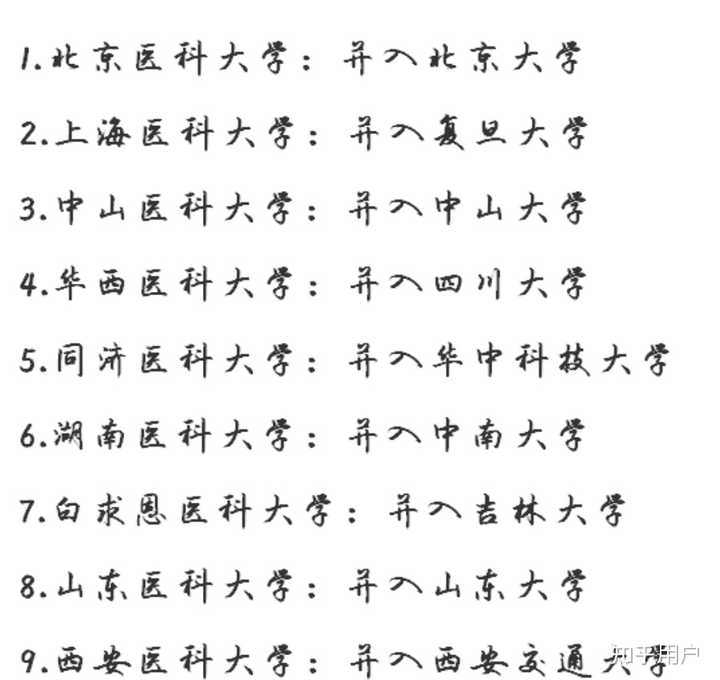 1.北京医科大学：并入北京大学
2.上海医科大学：并入复旦大学
3.中山医科大学：并入中山大学
4.华西医科大学：并入四川大学
5.同济医科大学：并入华中科技大学
6.湖南医科大学：并入中南大学
7.白求恩医科大学：并入吉林大学
8.山东医科大学：并入山东大学
9.西安医科大学：并入西安交通大学
知乎用户